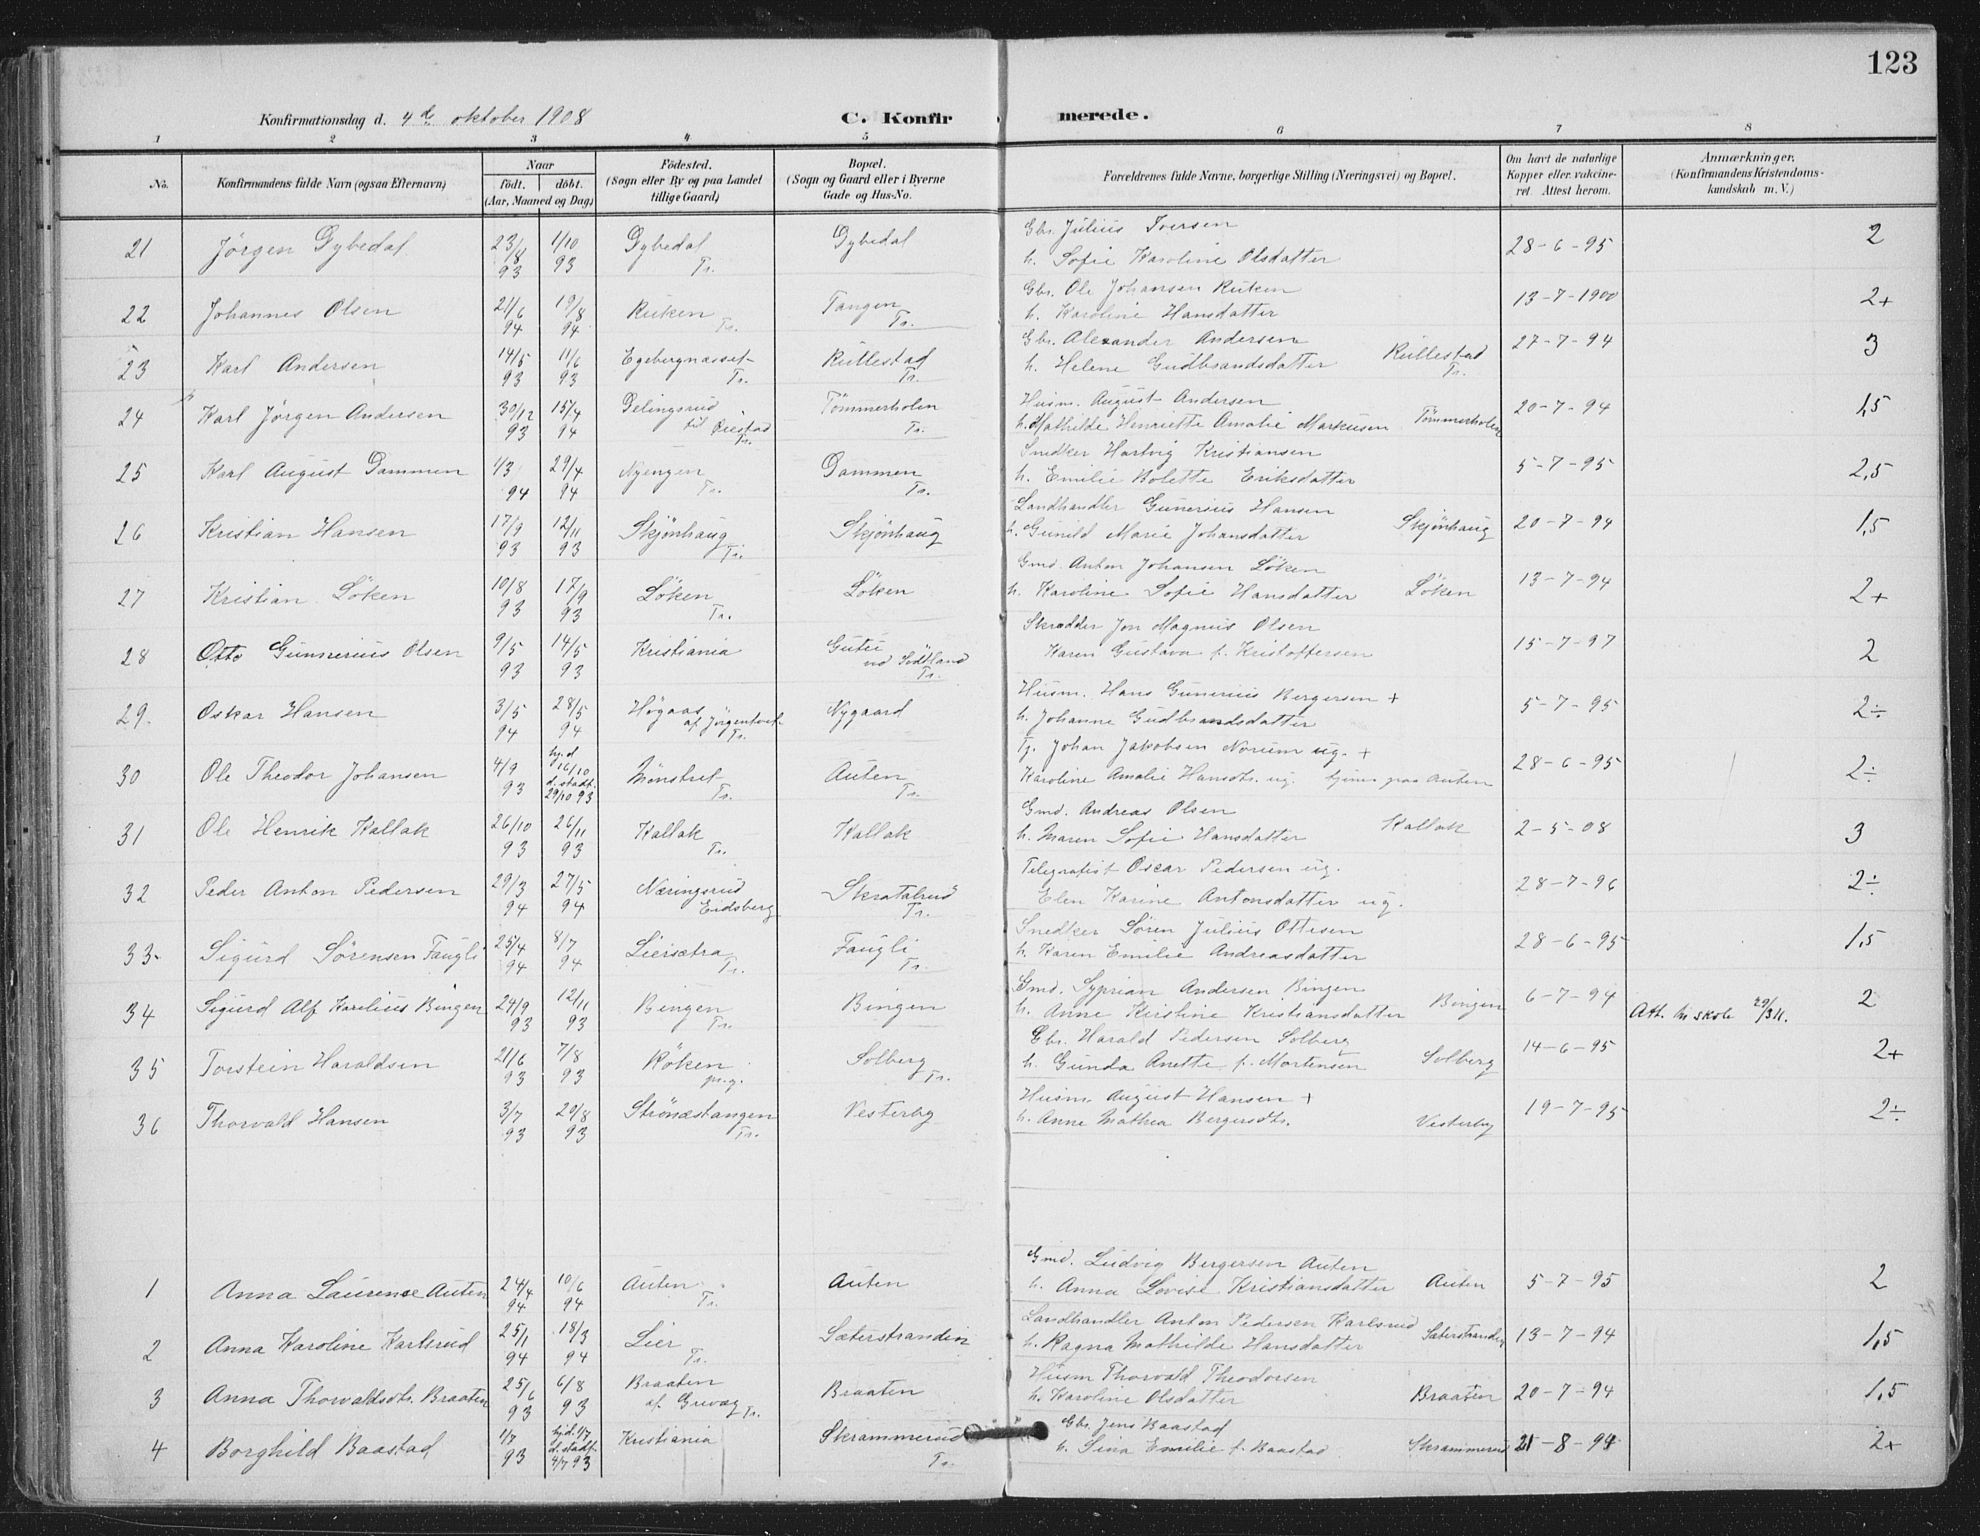 123
Konfirmationsdag d. 4de oktober 1908 C. Konfirmerede.
1 2 3 4 5 6 7 8
No. Konfirmandens fulde Navn (ogsaa Efternavn) Naar født. døbt. (Aar, Maaned og Dag) Fødested. (Sogn eller By og paa Landet tillige Gaard) Bopæl. (Sogn og Gaard eller i Byerne Gade og Hus-No. Forældrenes fulde Navne, borgerlige Stilling (Næringsvei) og Bopæl. Om havt de naturlige Kopper eller vakcineret. Attest herom. Anmærkninger. (Konfirmandens Kristendomskundskab m. V.)
21 Jörgen Gybedal 23/8 93 1/10 93 Gybedal Tr. Gybedal Gbr. Julius Iversen
h. Sofie Karoline Olsdatter 28-6-95 2
22 Johannes Olsen 21/6 94 19/8 94 Ruken Tr. Tangen Tr. Gbr. Ole Johansen Ruken
h. Karoline Hansdatter 13-7-1900 2+
23 Karl Andersen 14/5 93 11/6 93 Egebergnæsset Tr. Rullestad Tr. Gbr. Alexander Andersen
h. Helene Gudbrandsdatter Rullestad Tr. 27-7-94 3
24 Karl Jörgen Andersen 30/12 93 15/4 94 til Tr. Tömmerholen Tr. Husm. August Andersen
h. Mathilde Henriette Amalie Markusen Tömmerholen 20-7-94 1,5
25 Karl August Dammen 1/3 94 29/4 94 Nyengen Tr. Dammen Tr. Snedker Hartvig Kristiansen
h. Emilie Bolette Eriksdatter 5-7-95 2,5
26 Kristian Hansen 17/9 93 12/11 93 Skjönhaug Tr. Skjönhaug Landhandler Gunerius Hansen
h. Gunild Marie Johansdatter Skjönhaug 20-7-94 1,5
27 Kristian Löken 10/8 93 17/9 93 Löken Tr. Löken Gmd. Anton Johansen Löken
h. Karoline Sofie Hansdatter Löken 13-7-94 2+
28 Otto Gunnerius Olsen 9/5 93 14/5 93 Kristiania Tr. Skrædder Jon Magnus Olsen
Karen Gustava f. Kristoffersen 15-7-97 2
29. Oskar Hansen 3/5 94 28/5 94 Högaas af Tr. Nygaard Husm. Hans Gunerius Bergersen +
h. Johanne Gudbrandsdatter 5-7-95 2÷
30 Ole Theodor Johansen 4/9 93 hj.d. 16/10 d. stadf. 29/10 93 Mönstret Tr. Auten Tr. Tj. Johan Jakobsen Norum ug. +
Karoline Amalie Hansdtr. ug. tjener paa Auten 28-6-95 2÷
31 Ole Henrik Kallak 26/10 93 26/11 93 Kallak Tr. Kallak Gmd. Andreas Olsen
h. Maren Sofie Hansdatter Kallak 2-5-08 3
32 Peder Anton Pedersen 29/3 94 27/5 94 Næringsrud Eidsberg Skratalrud Tr. Telegrafist Oscar Pedersen ug.
Elen Karine Antonsdatter ug. 28-7-96 2÷
33 Sigurd Sörensen Faugli 25/4 94 8/7 94 Liersætra Tr. Faugli Tr. Snedker Sören Julius Ottesen
h. Karen Emilie Andreasdatter 28-6-95 1,5
34 Sigurd Alf Karelius Bingen 24/9 93 12/11 93 Bingen Tr. Bingen Gmd. Syprian Andersen Bingen
h. Anne Kirstine Kristiansdatter Bingen 6-7-94 Att. til skole 29/3 11. 2
35 Torstein Haraldsen 21/6 93 7/8 93 Röken pr.g. Solberg Tr. Gbr. Harald Pedersen Solberg
h. Gunda Anette f. Mortensen Solberg 14-6-95 2+
36 Thorvald Hansen 3/7 93 20/8 93 Strönæstangen Tr. Vesterby Husm. August Hansen +
h. Anne Mathea Bergersdtr. Vesterby 19-7-95 2÷
1 Anna Laurense Auten 24/4 94 10/6 94 Auten Tr. Auten Gmd. Ludvig Bergersen Auten
h. Anna Lovise Kristiansdatter Auten 5-7-95 2
2 Anna Karoline Karlsrud 25/1 94 18/3 94 Lier Tr. Sæterstranden Landhandler Anton Pedersen Karlsrud
h. Ragna Mathilde Hansdatter Sæterstranden 13-7-94 1,5
3 Anna Thorvaldsdtr. Braaten 25/6 93 6/8 93 Braaten af Grevæg Tr. Braaten Husm Thorvald Theodorsen
h. Karoline Olsdatter Braaten 20-7-94 1,5
4 Borghild Baastad 93 hj.d. 1/7 d. stadf. 4/7 93 Kristiania Skrammerud Tr. Gbr. Jens Baastad
h. Lina Emilie f. Baastad Skrammerud 21-8-94 2+